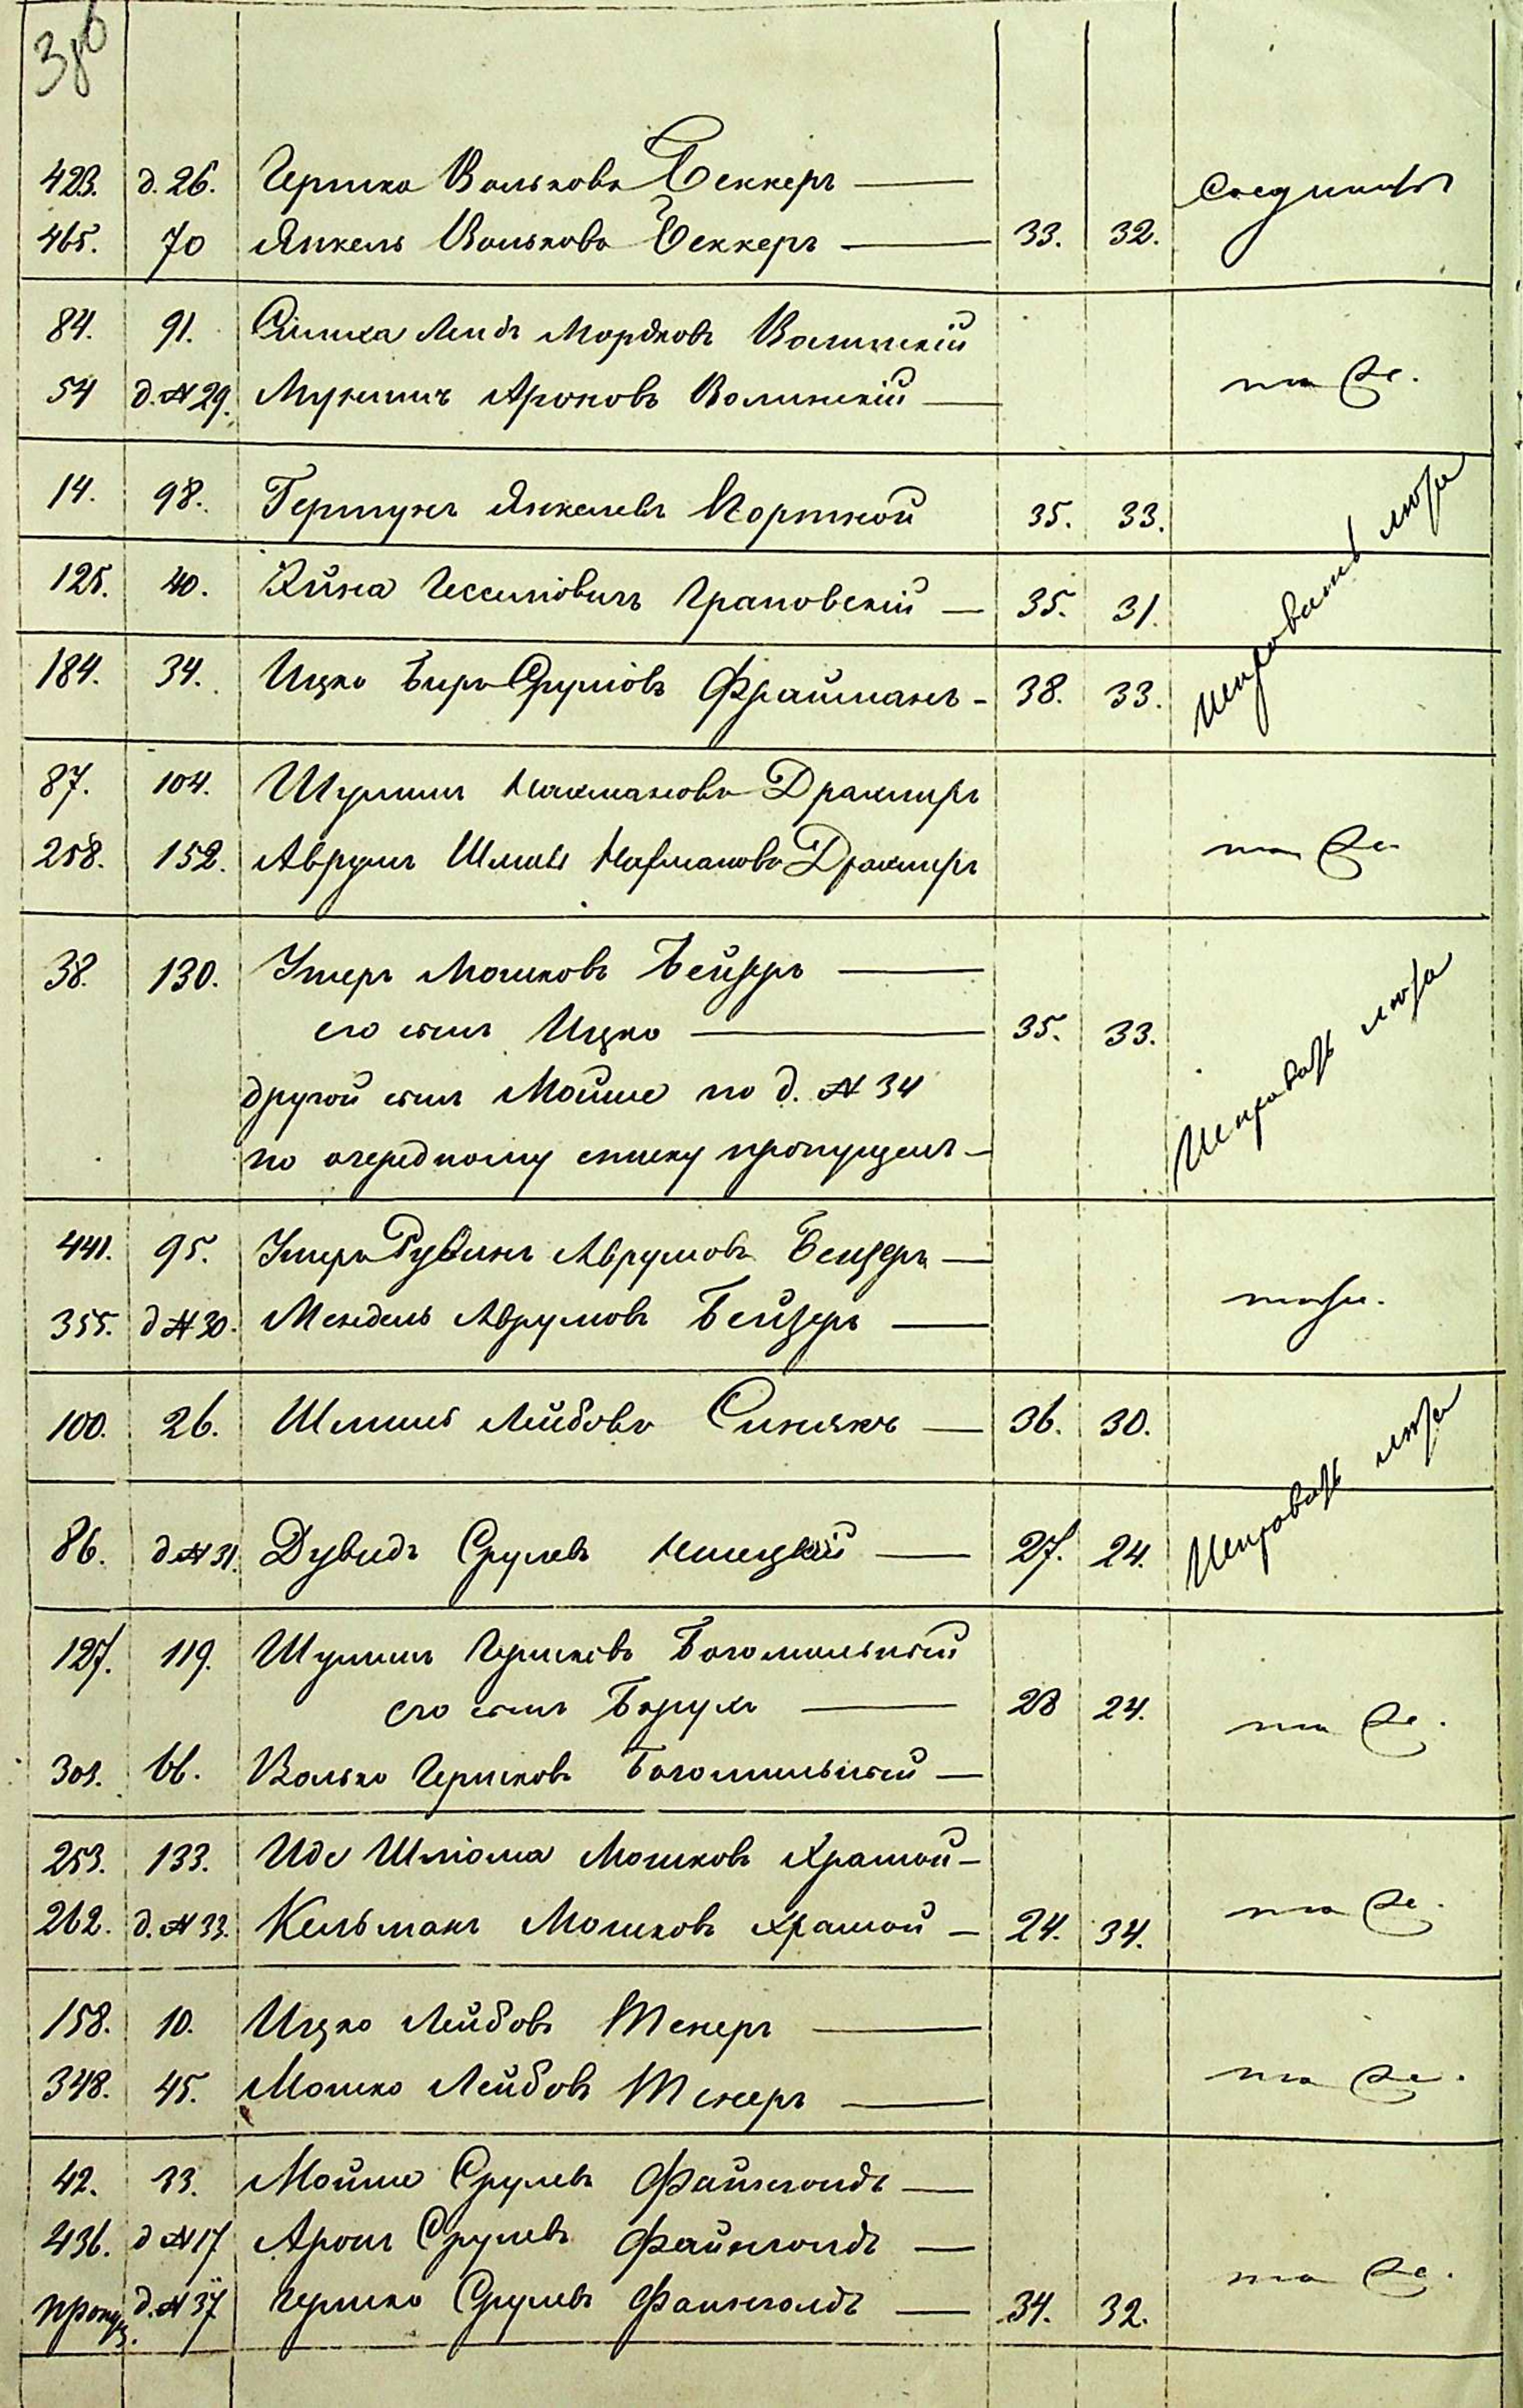 386
423. д. 26. Гершко Вольковъ Беккеръ —
465. 70 Янкель Вольковъ Беккеръ — 33. 32. Соединить
84. 91. Симха Лейбъ Мордковъ Волинскій
54 д. № 29. Ароновъ Волинскій — то же.
14. 98. Гершунъ Янкелевъ Портной 35. 33.
125. 40. Хуна Иссиповичъ Грановскій — 35. 31.
184. 34. Ицко Беръ Сруловъ Фрайманъ - 38. 33.
87. 104. Шулимъ Нахмановъ Драхлиръ
258. 152. Аврумъ Шмиль Нахмановъ Драхлиръ то же
38. 130. Ушеръ Мошковъ Бейдеръ —
его сынъ Ицко — 35. 33.
другой сынъ Мойше по д. № 34
по очередному списку пропущенъ -
441. 95. Ушеръ Рувинъ Аврумовъ Бейдеръ —
355. д № 30. Мендель Аврумовъ Бейдеръ — тоже.
100. 26. Шмиль Лейбовъ Синякъ — 36. 30.
86. д № 31. Дувидъ Срулевъ — 27. 24.
127. 119. Шулимъ Гершковъ Богомильскій
его сынъ Барухъ — 28 24. то же.
301. 66. Волько Гершковъ Богомильскій —
253. 133. Иде Шлiома Мошковъ Храмой -
262. д. № 33. Кельманъ Мошковъ Храмой - 24. 34. то же.
158. 10. Ицко Лейбовъ Тенеръ —
348. 45. Мошко Лейбовъ Тенеръ — то же.
42. 33. Мойше Срулевъ Файнгольдъ —
436. д № 17 Аронъ Срулевъ Файнгольдъ —
пропущ. д. № 37 Гершко Срулевъ Файнгольдъ — 34. 32. то же.